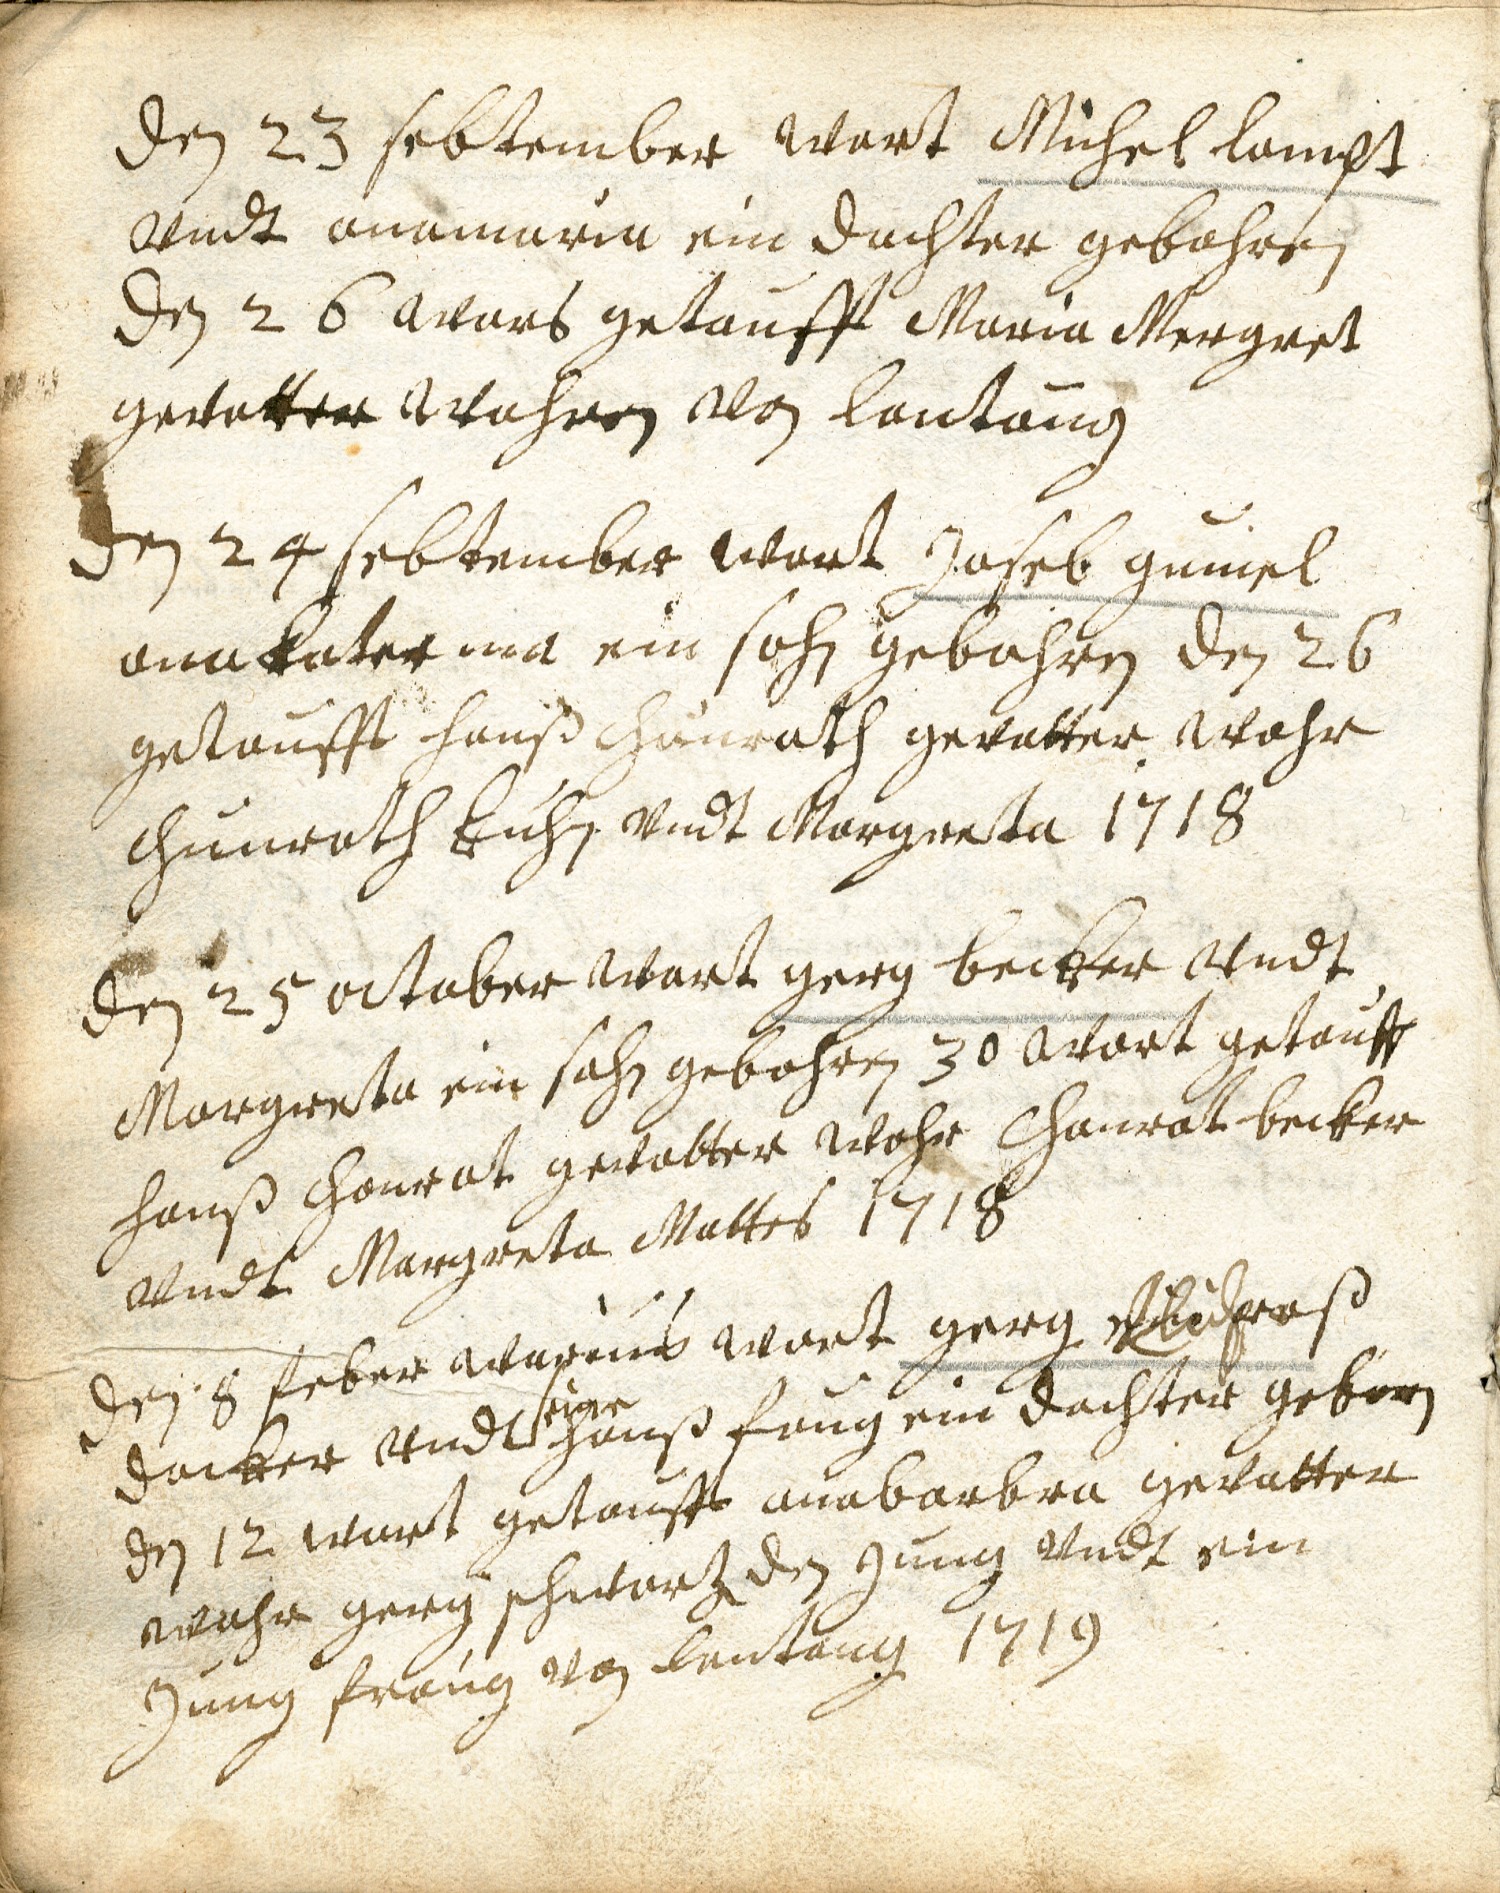 den 23 sebtember wart Michel lampt
vndt anamaria ein dachter gebohren
den 26 wars getaufft Maria Mergret
gevatter wahren von lantaug
den 24 sebtember wart Joseb gumel
anakaterina ein sohn gebohren den 26
getaufft hanß Chunrath gevatter wahr
Chunrath kuhn vndt Margreta 1718
den 25 october wart gerg becker vndt
Margreta ein sohn gebohren 30 wart getauff
hanß Chonrat gevatter wahr Chonrat becker
vndt Margreta Mattes 1718
den 8 feberwarius wart gerg
docker vndt seine hanß faug ein dachter geborn
den 12 wart getaufft anabarbra gevatter
wahr gerg schwartz den jung vndt ein
jung fraug von lentaug 1719